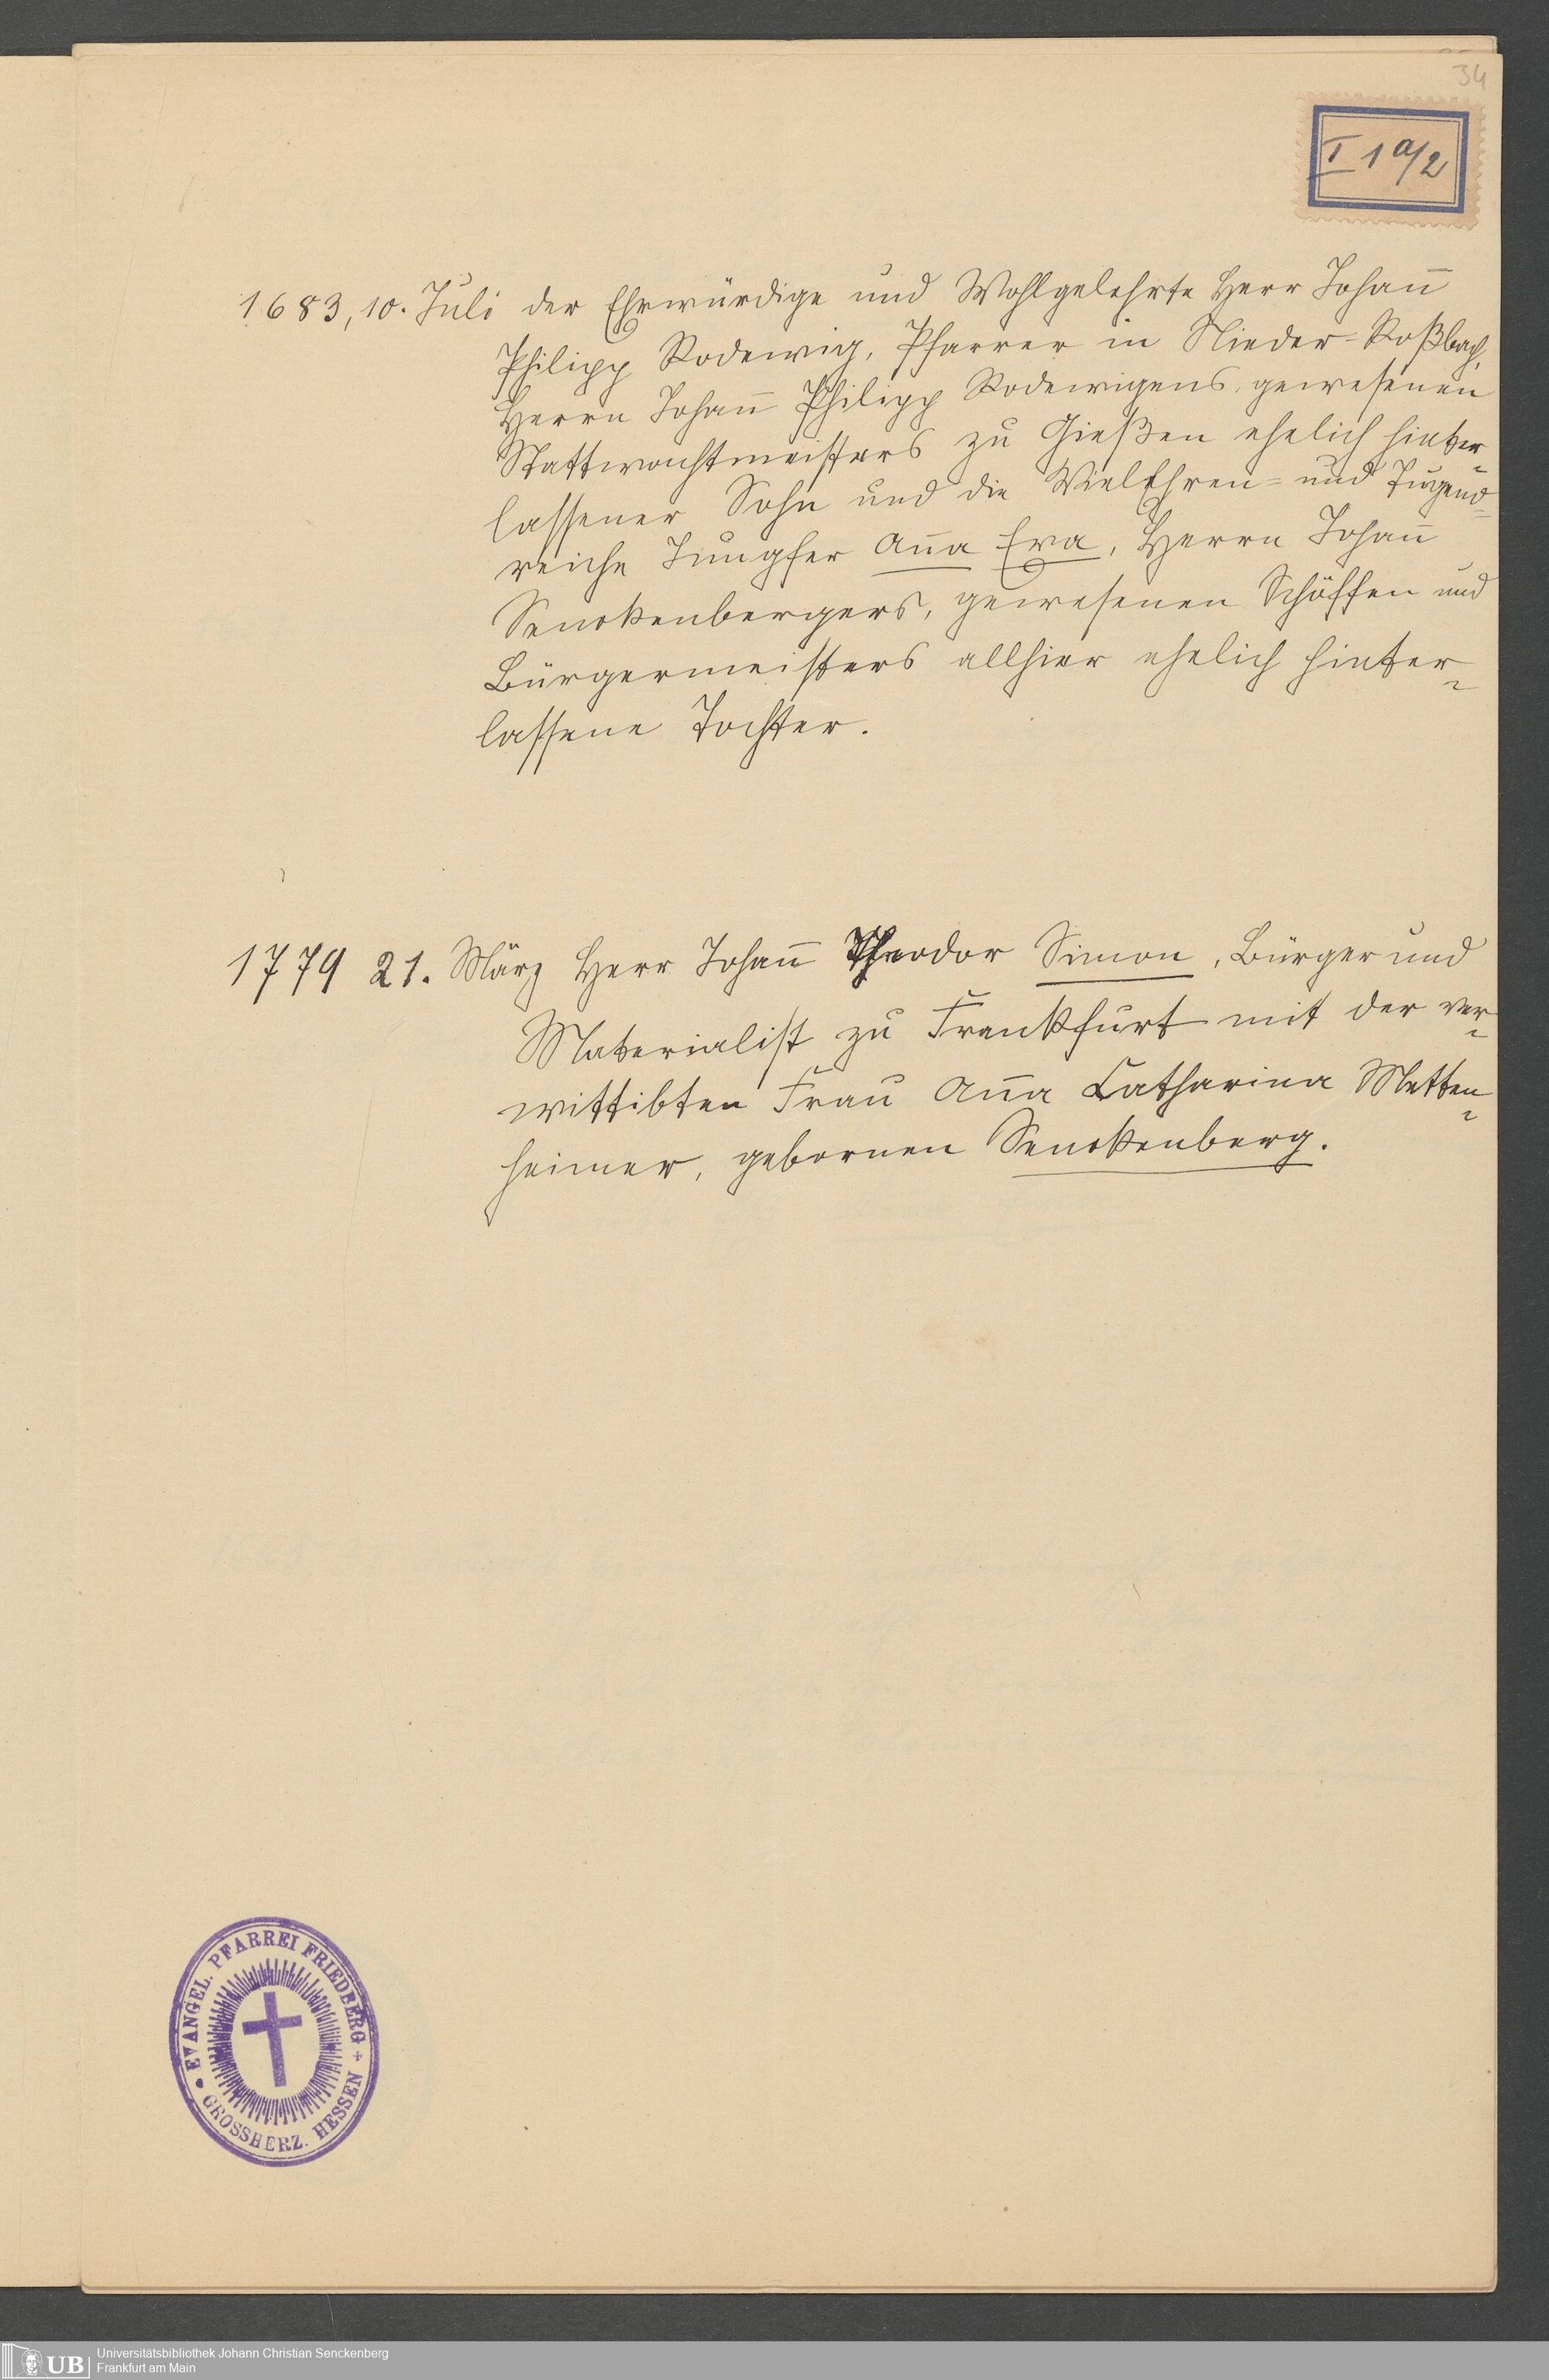 34
I 1 a/2
1683, 10. Juli der Ehrwürdige und Wohlgelehrte Herr Johan̄
Philipp Rodewig, Pfarrer in Nieder-Roßbach,
Herrn Johan̄ Philipp Rodewigens gewesenen
Stattwachtmeisters zu Gießen ehelich hinter-
lassener Sohn und die VielEhren= und Tugend=
reiche Jungfer An̄a Eva, Herrn Johan̄
Senckenbergers, gewesenen Schöffen und
Bürgermeisters allhier ehelich hinter-
lassene Tochter.
1779 21. März Herr Johan̄ Theodor Simon, Bürger und
Materialist zu Frankfurt mit der ver-
wittibten Frau An̄a Catharina Metten-
heimer, gebornen Senckenberg.
EVANGEL. PFARREI FRIEDBERG
GROSSHERZ. HESSEN
UB Universitätsbibliothek Johann Christian Senckenberg
Frankfurt am Main